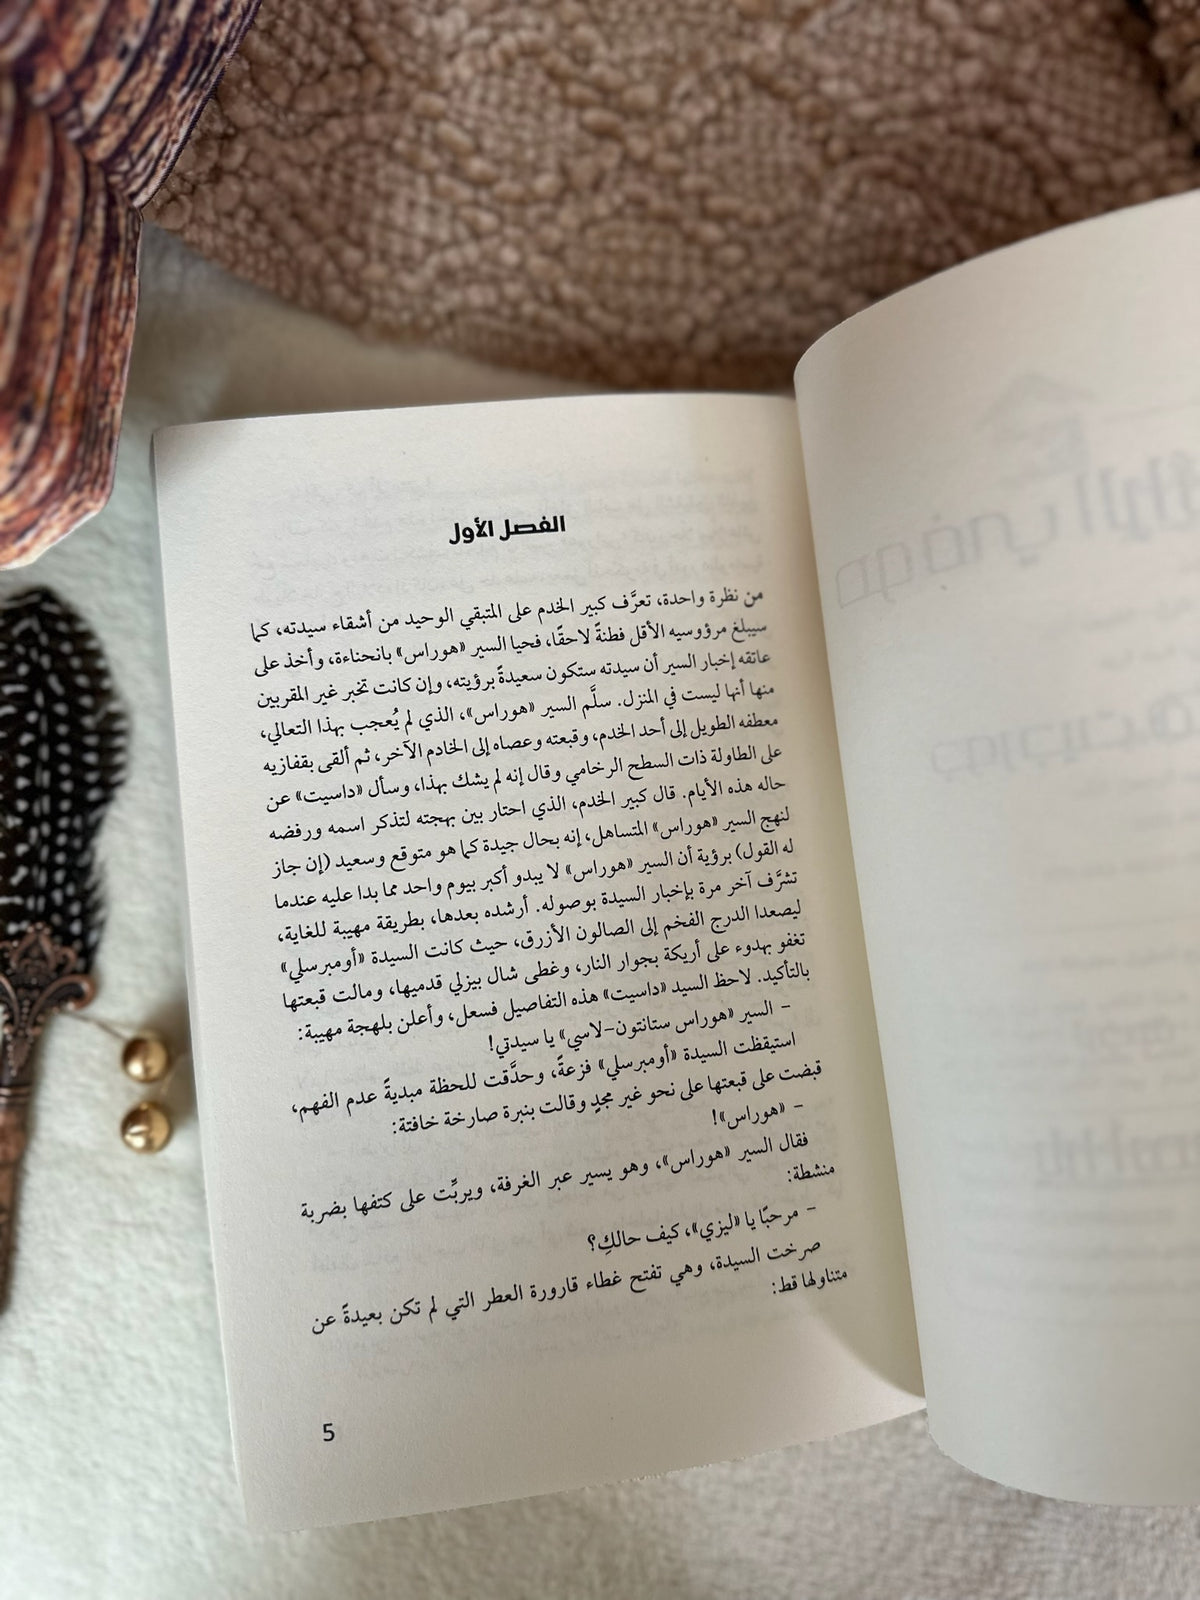 الفصل الأول
من نظرة واحدة، تعرَّف كبير الخدم على المتبقي الوحيد من أشقاء سيدته، كما
سيبلغ مرؤوسيه الأقل فطنةً لاحقًا، فحيا السير «هوراس» بانحناءة، وأخذ على
عاتقه إخبار السير أن سيدته ستكون سعيدةً برؤيته، وإن كانت تخبر غير المقربين
منها أنها ليست في المنزل. سلَّم السير «هوراس»، الذي لم يُعجب بهذا التعالي،
معطفه الطويل إلى أحد الخدم، وقبعته وعصاه إلى الخادم الآخر، ثم ألقى بقفازيه
على الطاولة ذات السطح الرخامي وقال إنه لم يشك بهذا، وسأل «داسيت» عن
حاله هذه الأيام. قال كبير الخدم، الذي احتار بين بهجته لتذكر اسمه ورفضه
لنهج السير «هوراس» المتساهل، إنه بحال جيدة كما هو متوقع وسعيد (إن جاز
له القول) برؤية أن السير «هوراس» لا يبدو أكبر بيوم واحد مما بدا عليه عندما
تشرَّف آخر مرة بإخبار السيدة بوصوله. أرشده بعدها، بطريقة مهيبة للغاية،
ليصعدا الدرج الفخم إلى الصالون الأزرق، حيث كانت السيدة «أومبرسلي»
تغفو بهدوء على أريكة بجوار النار، وغطى شال بيزلي قدميها، ومالت قبعتها
بالتأكيد. لاحظ السيد «داسيت» هذه التفاصيل فسعل، وأعلن بلهجة مهيبة:
– السير «هوراس ستانتون-لاسي» يا سيدتي!
استيقظت السيدة «أومبرسلي» فزعةً، وحدَّقت للحظة مبديةً عدم الفهم،
قبضت على قبعتها على نحو غير مجدٍ وقالت بنبرة صارخة خافتة:
– «هوراس»!
فقال السير «هوراس»، وهو يسير عبر الغرفة، ويربِّت على كتفها بضربة
منشطة:
– مرحبًا يا «ليزي»، كيف حالكِ؟
صرخت السيدة، وهي تفتح غطاء قارورة العطر التي لم تكن بعيدةً عن
متناولها قط:
5